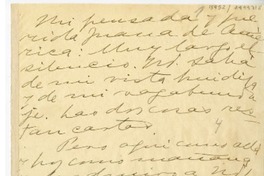 Mi pensada y que
rida Juana de Amé
rica: Muy largo el
silencio. Ud. sabía
de mi vista huidiza
y de mi vagabunda
je. Las dos cosas res
tan cartas.
y
Pero aquí como allá
y hoy como mañana